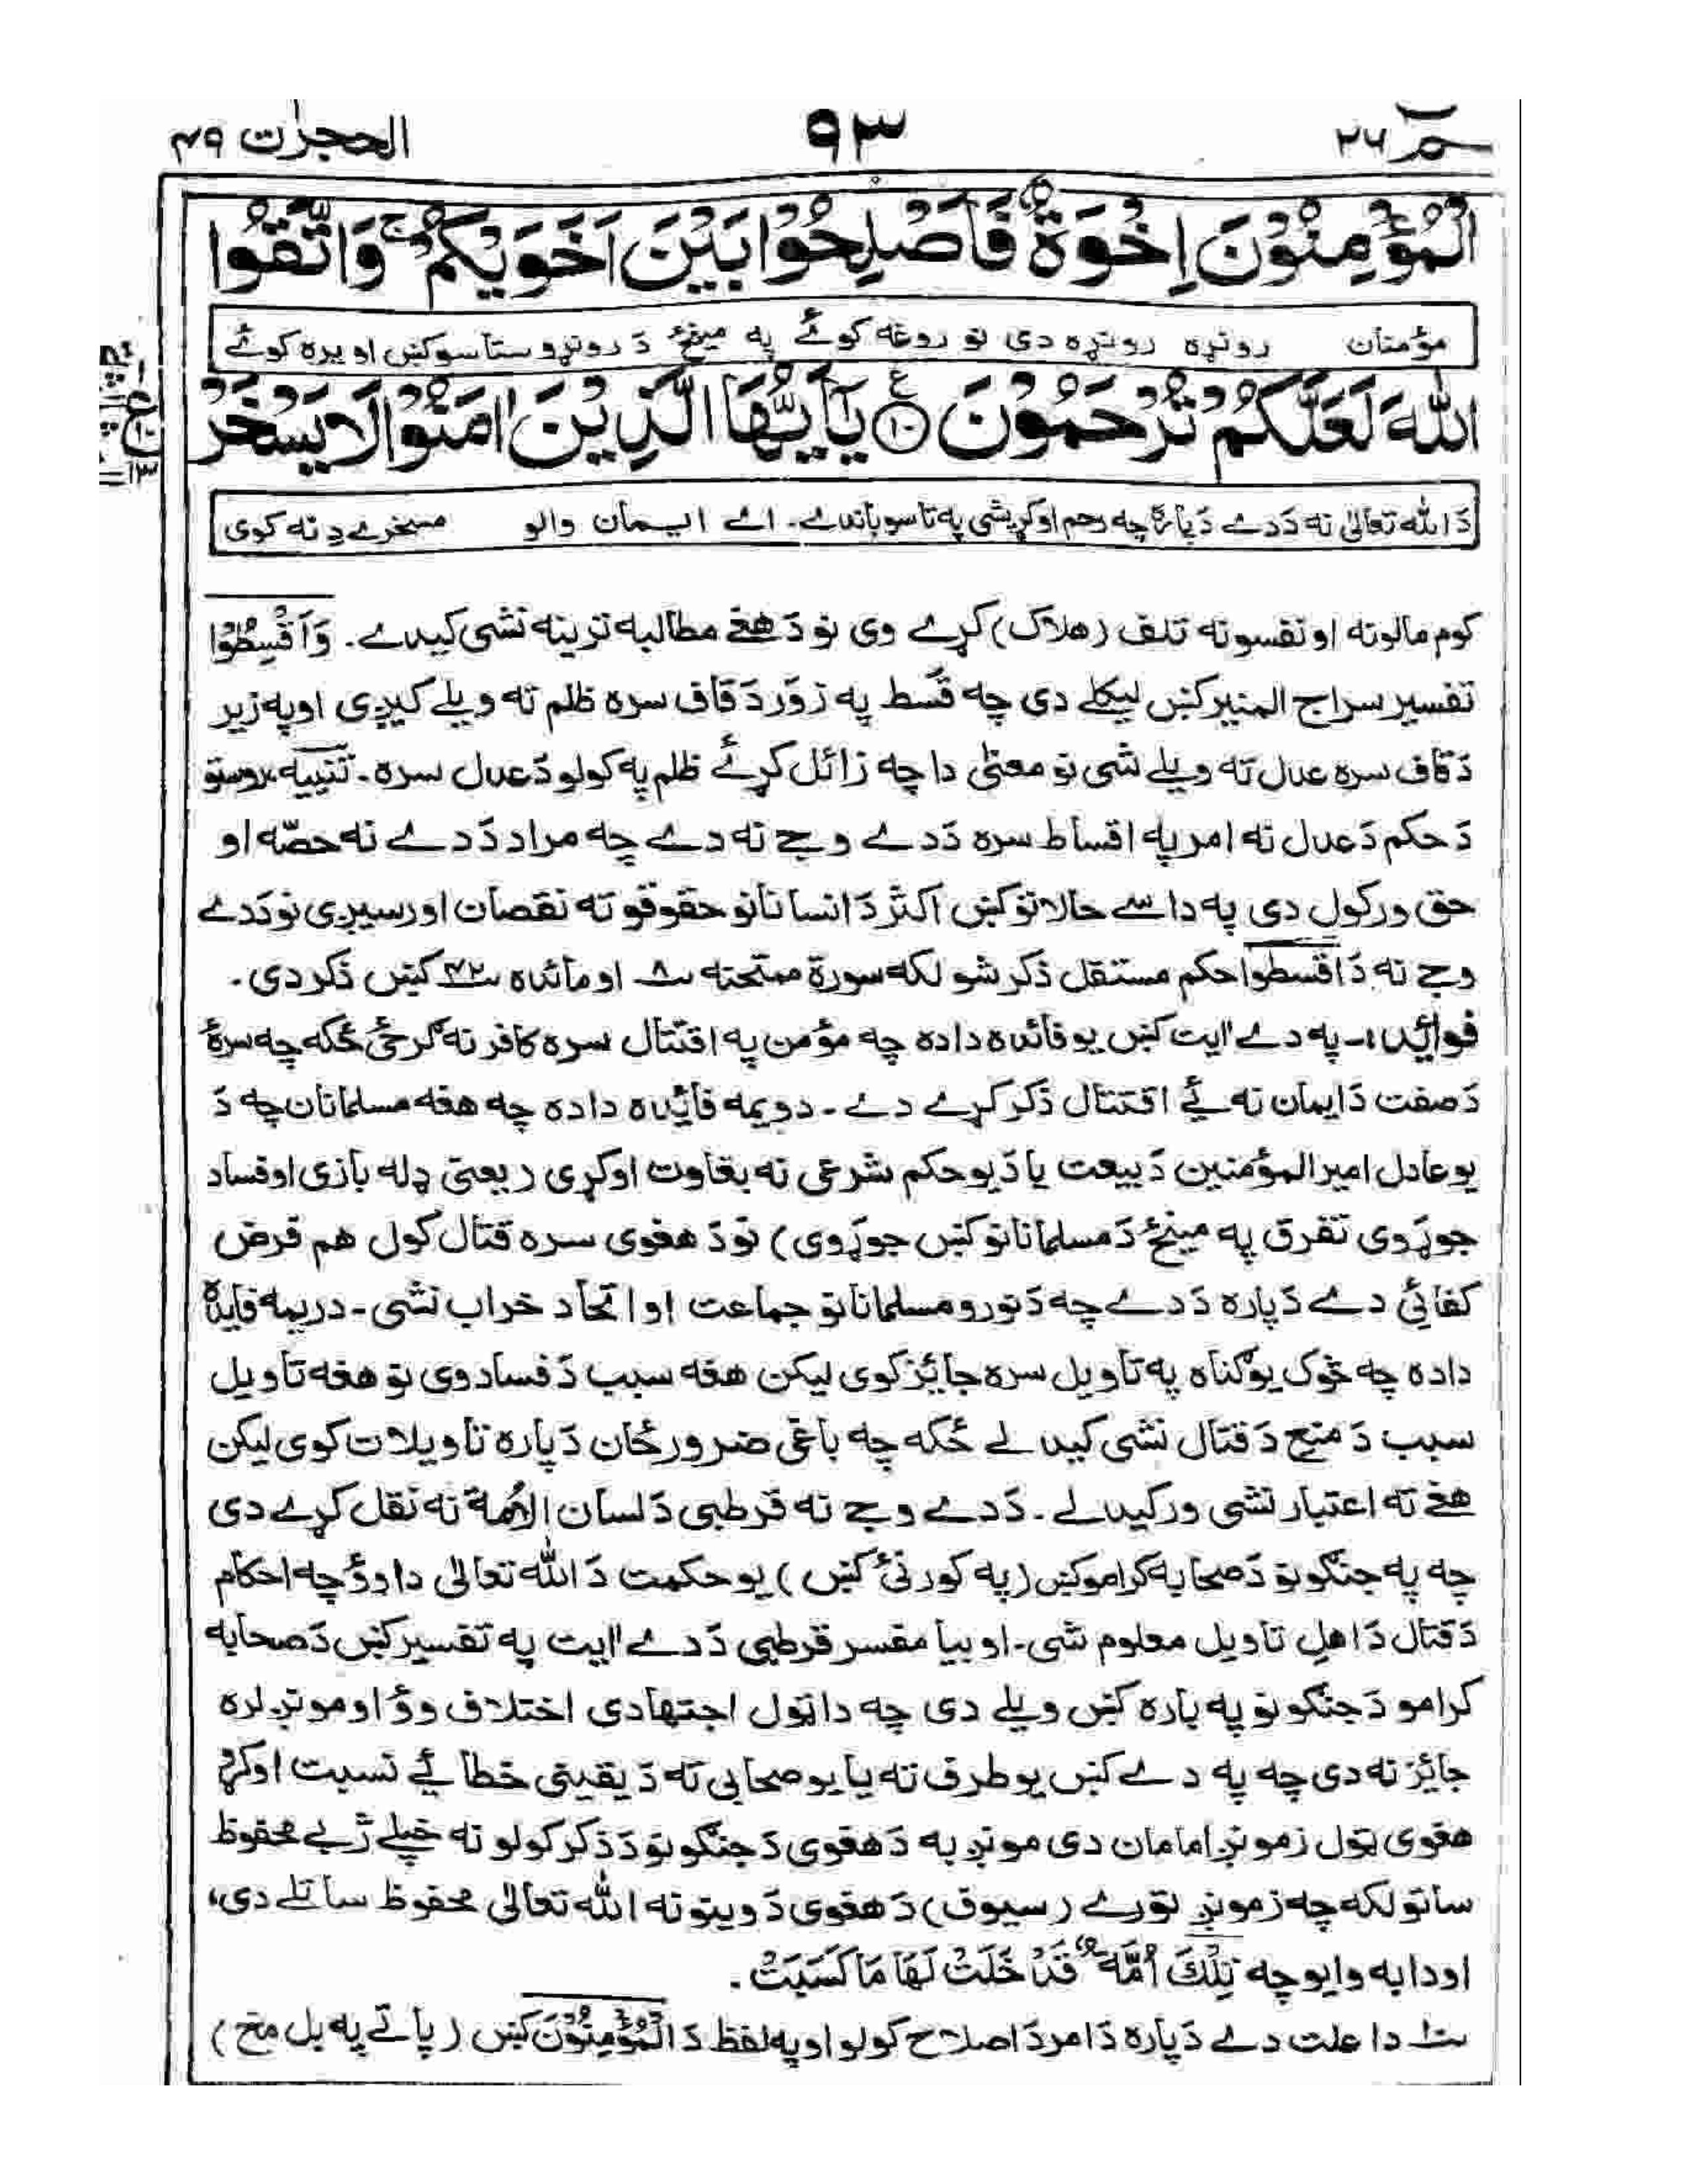 حٰمٓ ٢٦ ٩٣ الحجرٰت ٤٩
الْمُؤْمِنُوْنَ اِخْوَةٌ فَاَصْلِحُوْا بَيْنَ اَخَوَيْكُمْ ۚ وَاتَّقُوا
مؤمنان رونړه رونړه دی نو روغه کوئے په مینځ دَ رونړو ستاسو کښ او یره کوئے
اللّٰهَ لَعَلَّكُمْ تُرْحَمُوْنَ ﴿١٠﴾ يٰٓاَيُّهَا الَّذِيْنَ اٰمَنُوْا لَا يَسْخَرْ
دَ الله تعالیٰ نه دَ دے دَ پاره چه رحم اوکړیشی په تاسو باندے۔ اے ایمان والو مسخرے دِ نه کوی
کوم مالونه او نفسونه تلف (هلاک) کړے وی نو دَ هغے مطالبه ترینه نشی کیدے۔ وَاَقْسِطُوْا
تفسیر سراج المنیر کښ لیکلے دی چه قَسط په زوَر دَ قاف سره ظلم ته ویلے کیږی او په زیر
دَ قاف سره عدل ته ویلے شی نو معنیٰ دا چه زائل کړئے ظلم په کولو دَ عدل سره۔ تنبیه، روستو
دَ حکم دَ عدل نه امر په اقساط سره دَ دے وجے نه دے چه مراد دَ دے نه حصّه او
حق ورکول دی په داسے حالاتو کښ اکثر دَ انسانانو حقوقو ته نقصان اورسیږی نو دَ دے
وجے نه دَ اقسطوا حکم مستقل ذکر شو لکه سورة ممتحنه ۸ او مائده ۴۲ کښ ذکر دی۔
فوائد ۱۔ په دے اٰیت کښ یو فائده داده چه مؤمن په اقتتال سره کافر نه گرځی ځکه چه سره
دَ صفت دَ ایمان نه ئے اقتتال ذکر کړے دے۔ دویمه فائده داده چه هغه مسلمانان چه دَ
یو عادل امیر المؤمنین دَ بیعت یا دَ یو حکم شرعی نه بغاوت اوکړی (یعنی ډله بازی او فساد
جوړوی تفرق په مینځ دَ مسلمانانو کښ جوړوی) نو دَ هغوی سره قتال کول هم فرض
کفائی دے دَ پاره دَ دے چه دَ نورو مسلمانانو جماعت او اتحاد خراب نشی۔ دریمه فایده
داده چه څوک یو گناه په تاویل سره جائز کوی لیکن هغه سبب دَ فساد وی نو هغه تاویل
سبب دَ منع دَ قتال نشی کیدلے ځکه چه باغی ضرور ځان دَ پاره تاویلات کوی لیکن
هغے ته اعتبار نشی ورکیدلے۔ دَ دے وجے نه قرطبی دَ لسان الامة نه نقل کړے دی
چه په جنگونو دَ صحابه کرامو کښ (په کورنئ کښ) یو حکمت دَ الله تعالیٰ دا وؤ چه احکام
دَ قتال دَ اهلِ تاویل معلوم شی۔ او بیا مفسر قرطبی دَ دے اٰیت په تفسیر کښ دَ صحابه
کرامو دَ جنگونو په باره کښ ویلے دی چه دا ټول اجتهادی اختلاف وؤ او مونږ لره
جائز نه دی چه په دے کښ یو طرف ته یا یو صحابی ته دَ یقینی خطائے نسبت اوکړو
هغوی ټول زمونږ امامان دی مونږ به دَ هغوی دَ جنگونو دَ ذکر کولو نه خپلے ژبے محفوظ
ساتو لکه چه زمونږ تورے (سیوف) دَ هغوی دَ وینو نه الله تعالیٰ محفوظ ساتلے دی،
او دا به وایو چه تِلْكَ اُمَّةٌ قَدْ خَلَتْ لَهَا مَا كَسَبَتْ۔
۱۰ دا علت دے دَ پاره دَ امر دَ اصلاح کولو او په لفظ دَ الْمُؤْمِنُوْنَ کښ (پاتے په بل مخ)